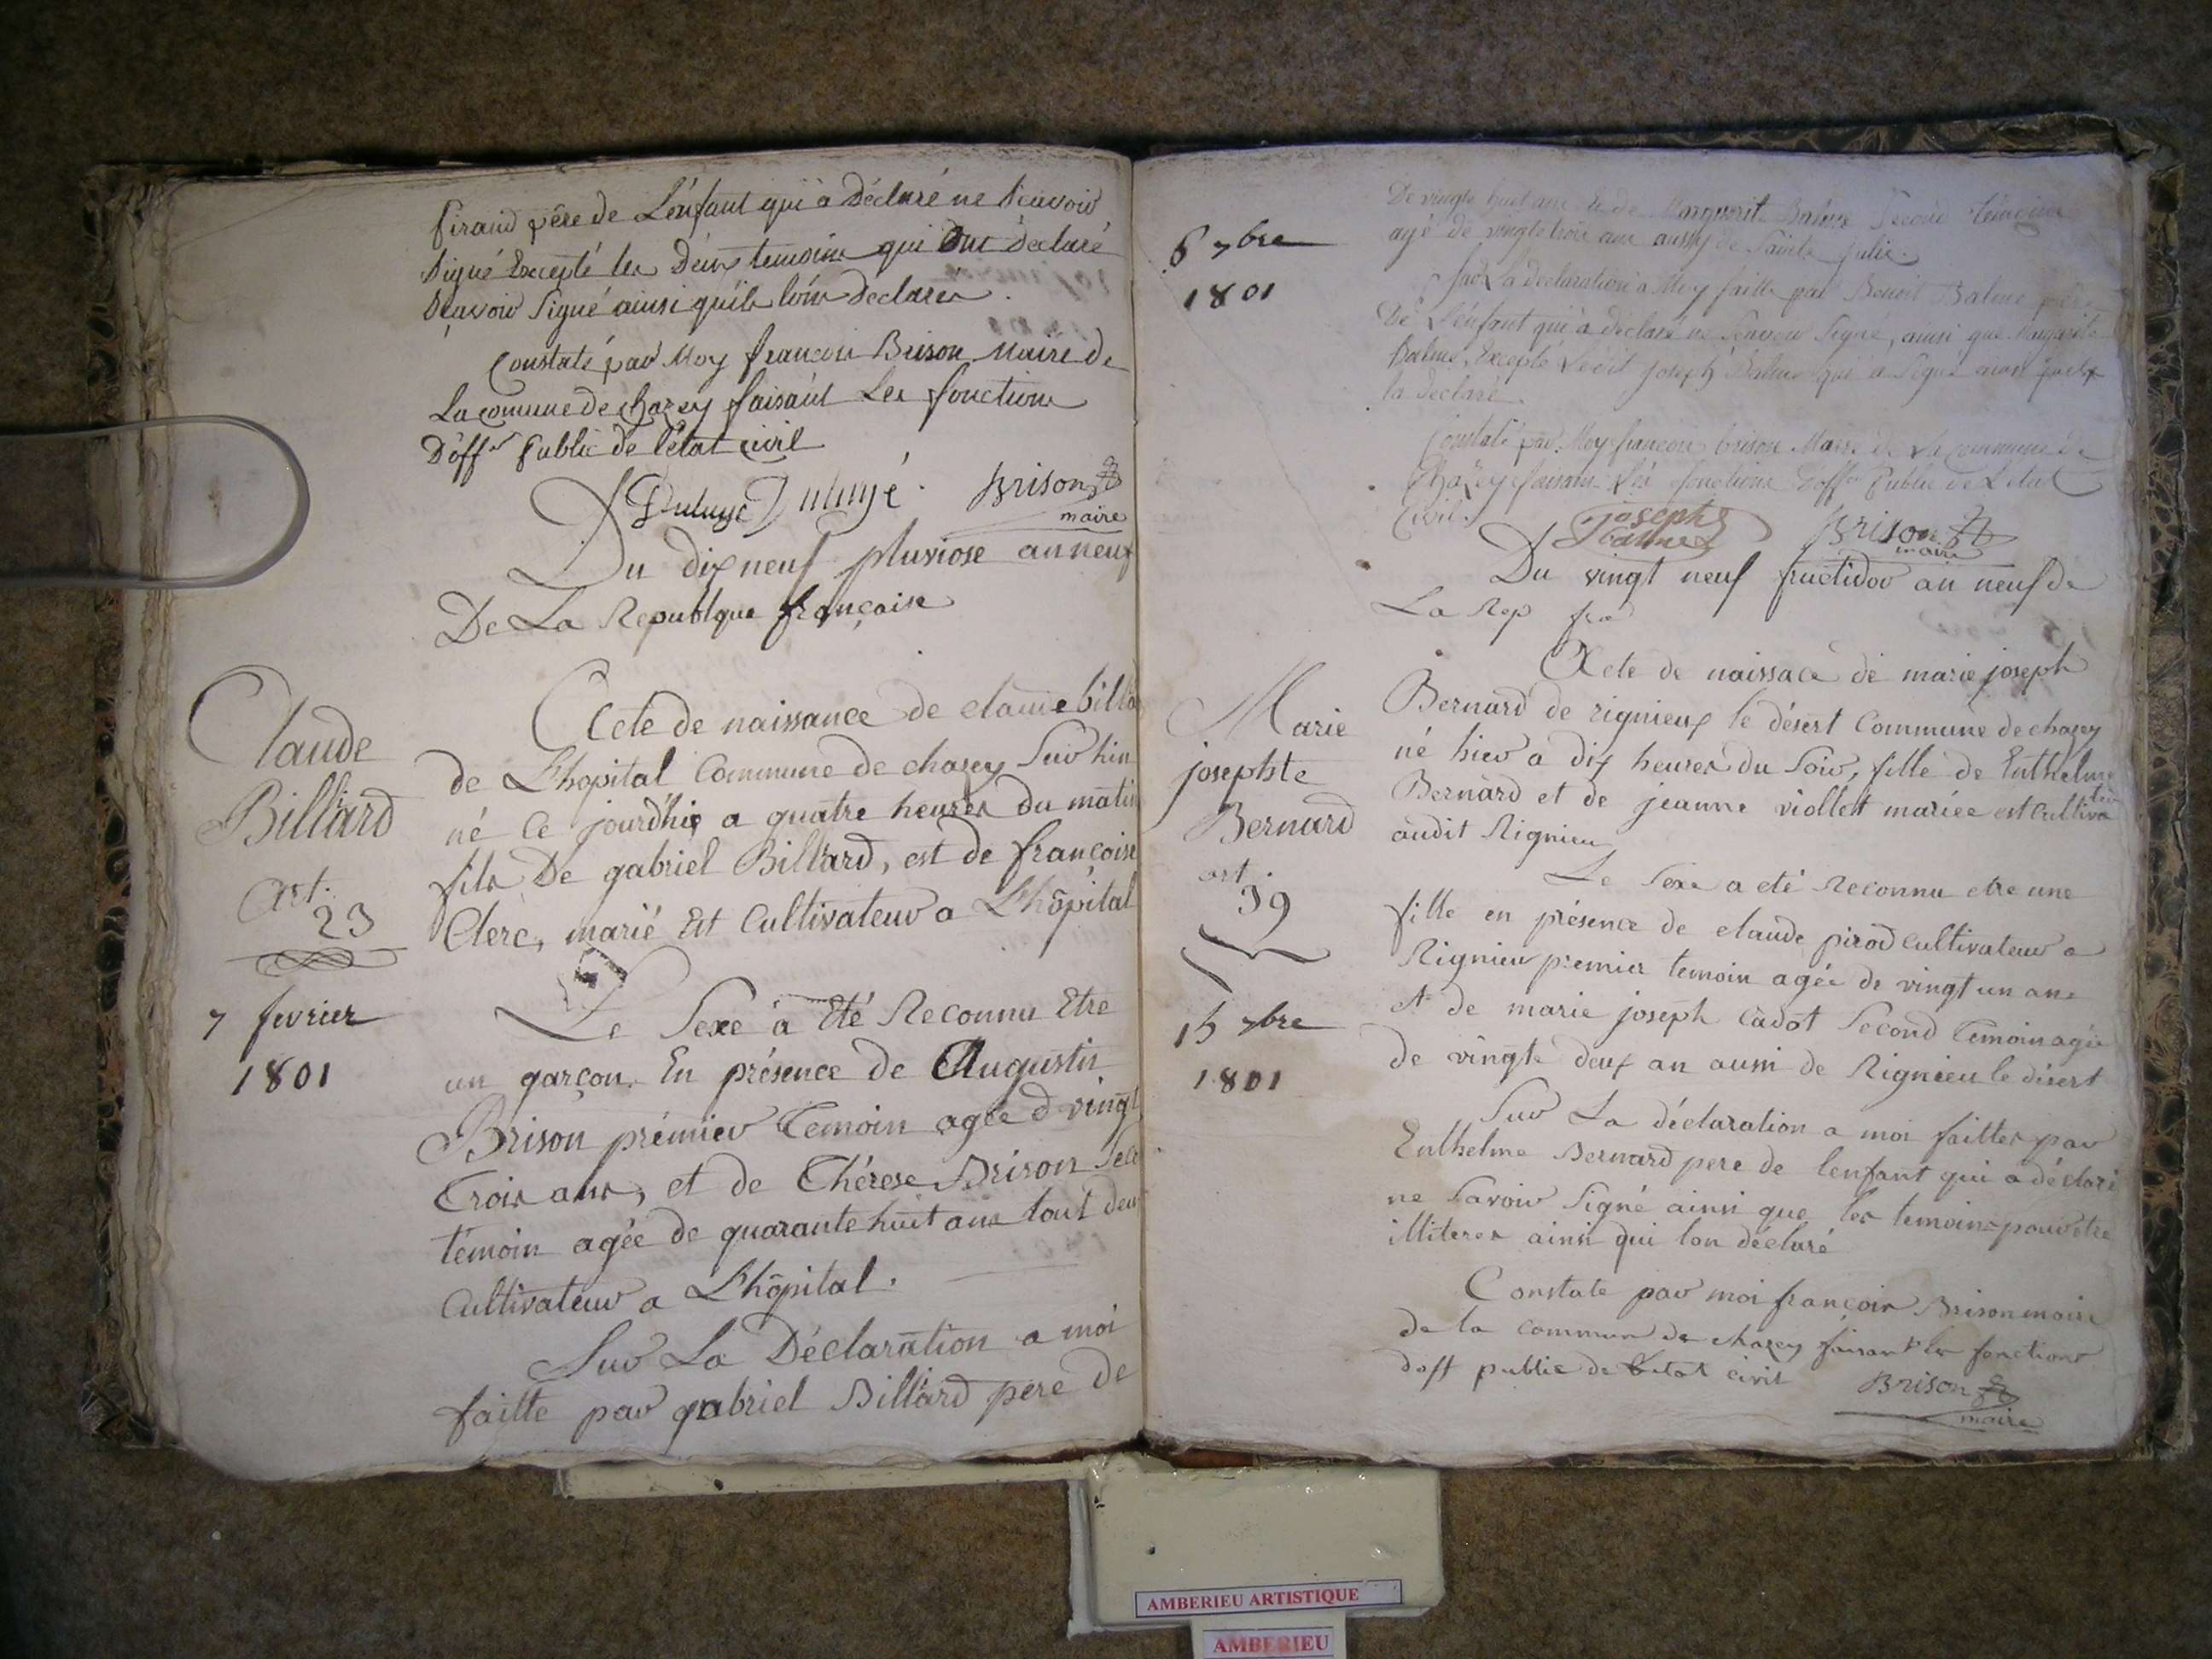 Pirand père de L'énfant qui à Déclaré ne Sçavoir
Signé Excepté les Deux temoins qui Ont Déclaré
Sçavoir Signé ainsi quils lon Declarés.
Constaté par Moy françois Brison Maire de
La comune de chazey faisant Les fonctions
D'offr Public de l'état Civil
Brison
maire
Du dix neuf pluviose an neuf
De La Republque française
Claude
Billard
Art.
23
7 fevrier
1801
Acte de naissance de claude billa
de L'hopital Commune de chazey Sur hin
né Ce jourd'hie a quatre heures du matin
fils De gabriel Billard, est de françoise
Clerc, marié Et Cultivateur a L'hôpital
Le Sexe à Eté Reconnu Etre
un garçon. En présence de Augustin
Brison prémier Temoin agée d vingt
Trois ans, et de Thérese Brison Sec
témoin agée de quarante huit ans tout deux
Cultivateur a L'hôpital.
Sur La Déclaration a moi
faitte par gabriel Billard pere de
6 7bre
1801
De vingte huit ans et de Marguerite Balme Second témoins
agé de vingte trois ans aussy de Sainte Julie.
Sur La déclaration à Moy faitte par Benoit Balme père
De L'énfant qui à déclaré ne Sçavoir Signé, ainsi que Margarite
Balme, Excepté Ledit joseph Balme qui a Signé
la déclaré.
Constaté par Moy françois brison Maire de La commune de
Chazey faisant Les fonctions D'offr Public de L'etat
Civil.
joseph
Balme
Brison
maire
Du vingt neuf fructidor an neuf de
La Rep fra
Marie
josephte
Bernard
art
39
15 7bre
1801
Acte de naissace de marie joseph
Bernard de rignieux le désert Commune de chazey
né hier a dix heures du Soir, fille de Enthelme
Bernard et de jeanne viollet mariée est Cultivateur
audit Rignieu
Le Sexe a eté Reconnu etre une
fille en présence de claude pirod cultivateur a
Rignieu premier temoin agée de vingt un ans
et de marie joseph Cadot Second Temoin agée
de vingte deux an aussi de Rignieu le désert
Sur La déclaration a moi faittes par
Enthelme Bernard pere de lenfant qui a déclaré
ne Savoir Signé ainsi que les temoins pour etre
illiteres ainsi qui lon déclaré
Constate par moi françois Brison maire
de la commun de chazey faisant les fonctions
doff public de letat civil
Brison
maire
AMBERIEU ARTISTIQUE
AMBERIEU